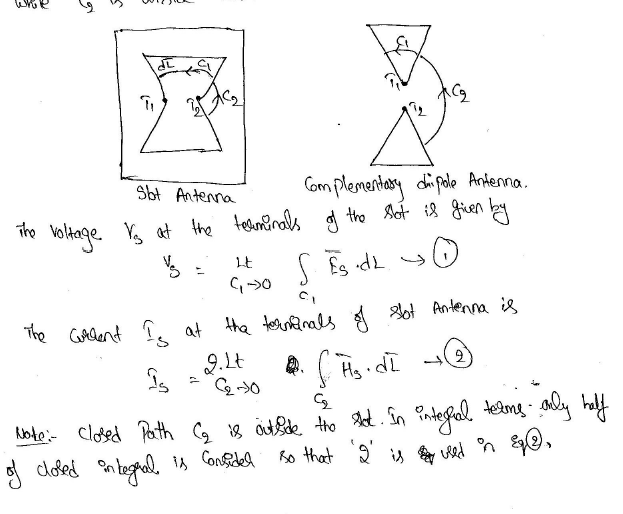 while C2 is outside
dL C1
T1 T2 C2
C1
T1
T2
C2
Slot Antenna
Complementary dipole Antenna.
The Voltage Vs at the terminals of the slot is given by
Vs = Lt C1→0 ∫C1 Es.dL → ①
The current Is at the terminals of slot Antenna is
Is = 2.Lt C2→0 ∫C2 Hs.dL → ②
Note:- Closed Path C2 is outside the slot. In integral terms only half
of closed integral is Consider so that '2' is used in Eq②.